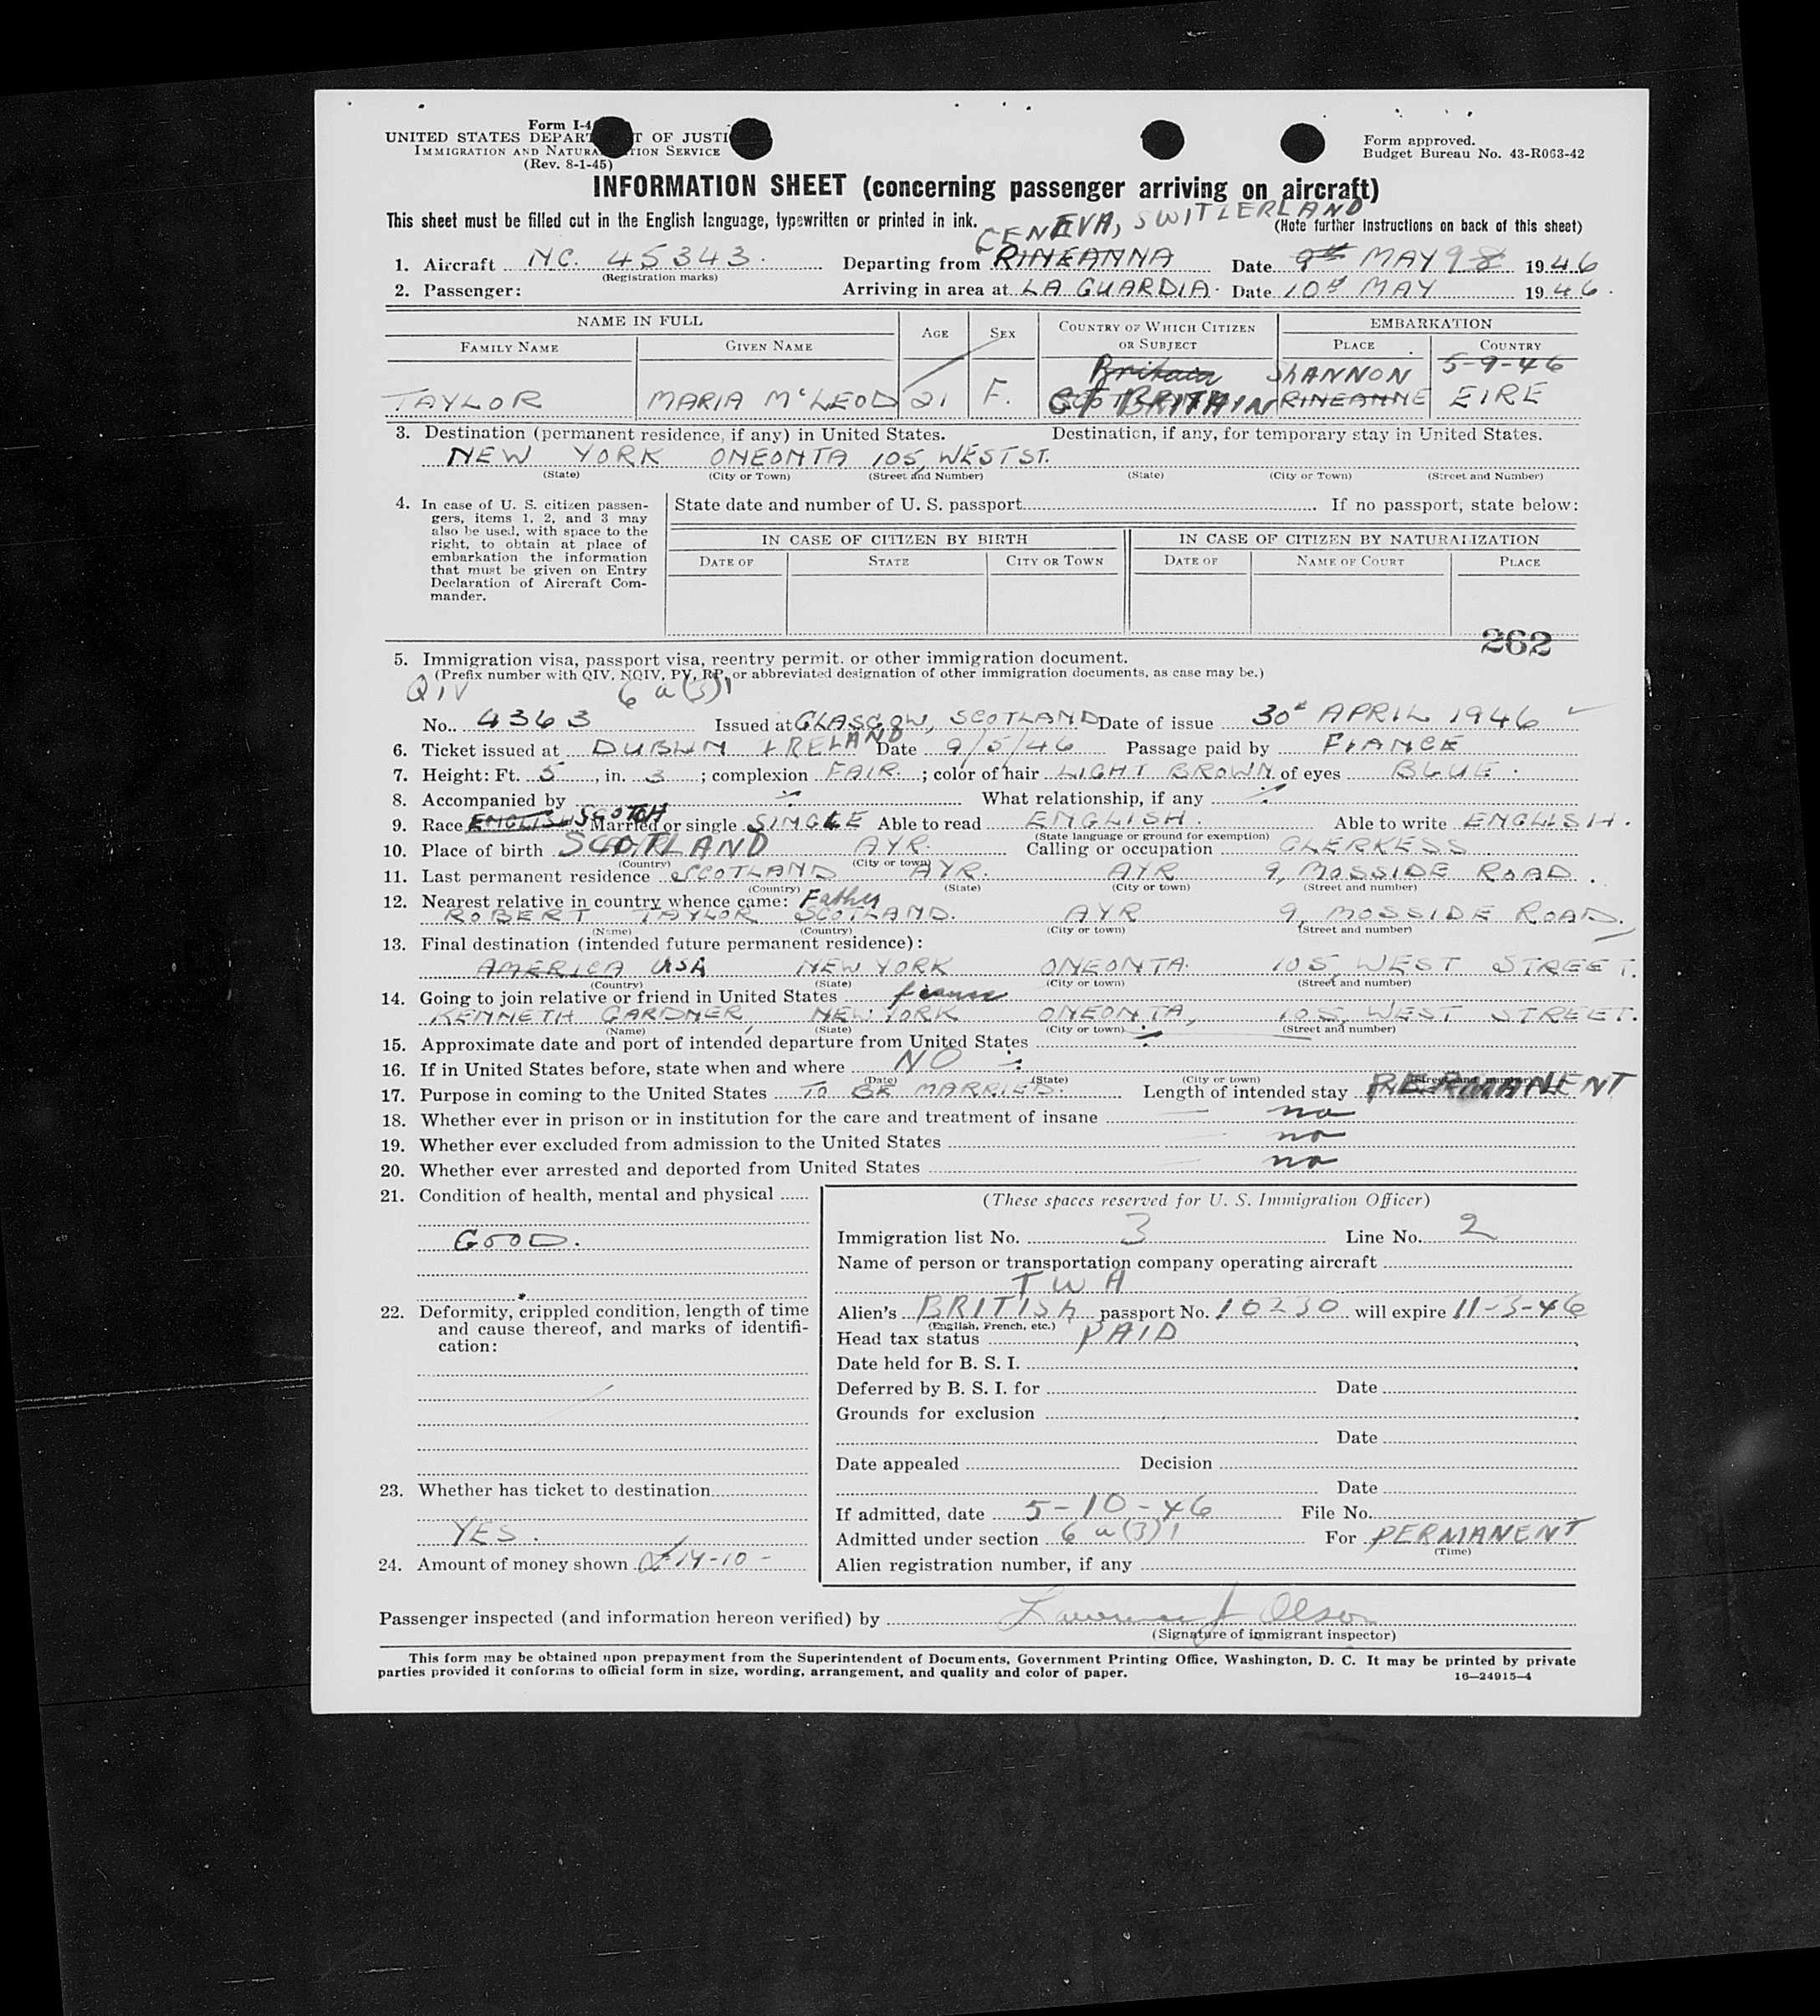 Form I-4
UNITED STATES DEPART T OF JUSTI
IMMIGRATION AND NATURA TION SERVICE
(Rev. 8-1-45)
Form approved.
Budget Bureau No. 43-R063-42
INFORMATION SHEET (concerning passenger arriving on aircraft)
This sheet must be filled out in the English language, typewritten or printed in ink.
(Note further instructions on back of this sheet)
GENEVA, SWITZERLAND
1. Aircraft NC. 45343. Departing from RINEANNA Date 9th MAY 9 8 1946
(Registration marks)
2. Passenger: Arriving in area at LA GUARDIA. Date 10th MAY 1946.
NAME IN FULL AGE SEX COUNTRY OF WHICH CITIZEN OR SUBJECT EMBARKATION
FAMILY NAME GIVEN NAME PLACE COUNTRY
Britain SHANNON 5-9-46
TAYLOR MARIA McLEOD 21 F. GT BRITAIN RINEANNE EIRE
3. Destination (permanent residence, if any) in United States. Destination, if any, for temporary stay in United States.
NEW YORK ONEONTA 105, WEST ST.
(State) (City or Town) (Street and Number) (State) (City or Town) (Street and Number)
4. In case of U. S. citizen passen-
gers, items 1, 2, and 3 may
also be used, with space to the
right, to obtain at place of
embarkation the information
that must be given on Entry
Declaration of Aircraft Com-
mander.
State date and number of U. S. passport If no passport, state below:
IN CASE OF CITIZEN BY BIRTH IN CASE OF CITIZEN BY NATURALIZATION
DATE OF STATE CITY OR TOWN DATE OF NAME OF COURT PLACE
262
5. Immigration visa, passport visa, reentry permit, or other immigration document.
(Prefix number with QIV, NQIV, PV, RP, or abbreviated designation of other immigration documents, as case may be.)
QIV 6 a (3) 1
No. 4363 Issued at GLASGOW, SCOTLAND Date of issue 30th APRIL 1946
6. Ticket issued at DUBLIN IRELAND Date 9/5/46 Passage paid by FIANCE
7. Height: Ft. 5, in. 3; complexion FAIR.; color of hair LIGHT BROWN of eyes BLUE.
8. Accompanied by ÷ What relationship, if any ÷
9. Race ENGLISH SCOTCH Married or single SINGLE Able to read ENGLISH. Able to write ENGLISH.
(State language or ground for exemption)
10. Place of birth SCOTLAND AYR. Calling or occupation CLERKESS
(Country) (City or town)
11. Last permanent residence SCOTLAND AYR. AYR 9, MOSSIDE ROAD.
(Country) (State) (City or town) (Street and number)
12. Nearest relative in country whence came: Father
ROBERT TAYLOR SCOTLAND. AYR 9, MOSSIDE ROAD.
(Name) (Country) (City or town) (Street and number)
13. Final destination (intended future permanent residence):
AMERICA USA NEW YORK ONEONTA. 105, WEST STREET.
(Country) (State) (City or town) (Street and number)
14. Going to join relative or friend in United States fiance
KENNETH GARDNER, NEW YORK ONEONTA, 105, WEST STREET.
(Name) (State) (City or town) (Street and number)
15. Approximate date and port of intended departure from United States ÷
16. If in United States before, state when and where NO ÷
(Date) (State) (City or town) (Street and number)
17. Purpose in coming to the United States TO BE MARRIED. Length of intended stay PERMANENT
18. Whether ever in prison or in institution for the care and treatment of insane no
19. Whether ever excluded from admission to the United States no
20. Whether ever arrested and deported from United States no
21. Condition of health, mental and physical
GOOD.
22. Deformity, crippled condition, length of time
and cause thereof, and marks of identifi-
cation:
23. Whether has ticket to destination
YES.
24. Amount of money shown £14-10-
(These spaces reserved for U. S. Immigration Officer)
Immigration list No. 3 Line No. 2
Name of person or transportation company operating aircraft
TWA
Alien's BRITISH passport No. 10230 will expire 11-3-46
(English, French, etc.)
Head tax status PAID
Date held for B. S. I.
Deferred by B. S. I. for Date
Grounds for exclusion
Date
Date appealed Decision
Date
If admitted, date 5-10-46 File No.
Admitted under section 6 a (3) 1 For PERMANENT
(Time)
Alien registration number, if any
Passenger inspected (and information hereon verified) by Lawrence J Olson
(Signature of immigrant inspector)
This form may be obtained upon prepayment from the Superintendent of Documents, Government Printing Office, Washington, D. C. It may be printed by private
parties provided it conforms to official form in size, wording, arrangement, and quality and color of paper.
16—24915-4